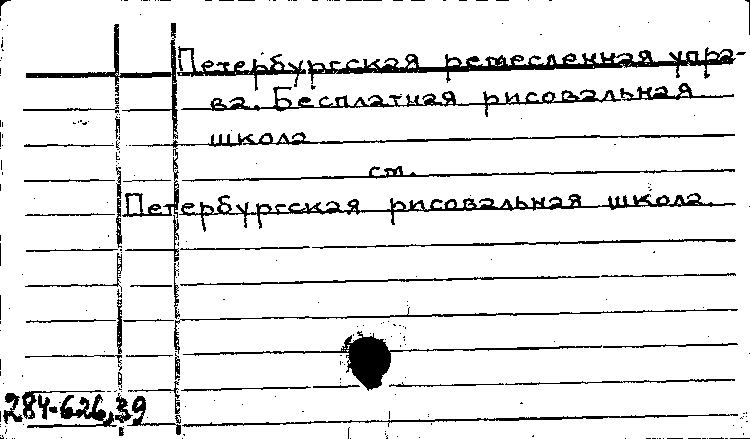 Петербургская ремесленная упра-
ва. Бесплатная рисовальная
школа
см.
Петербургская рисовальная школа.
284-626,39